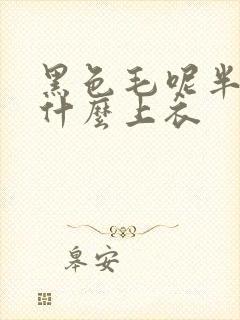 黑色毛呢半
什麼上衣
皋安